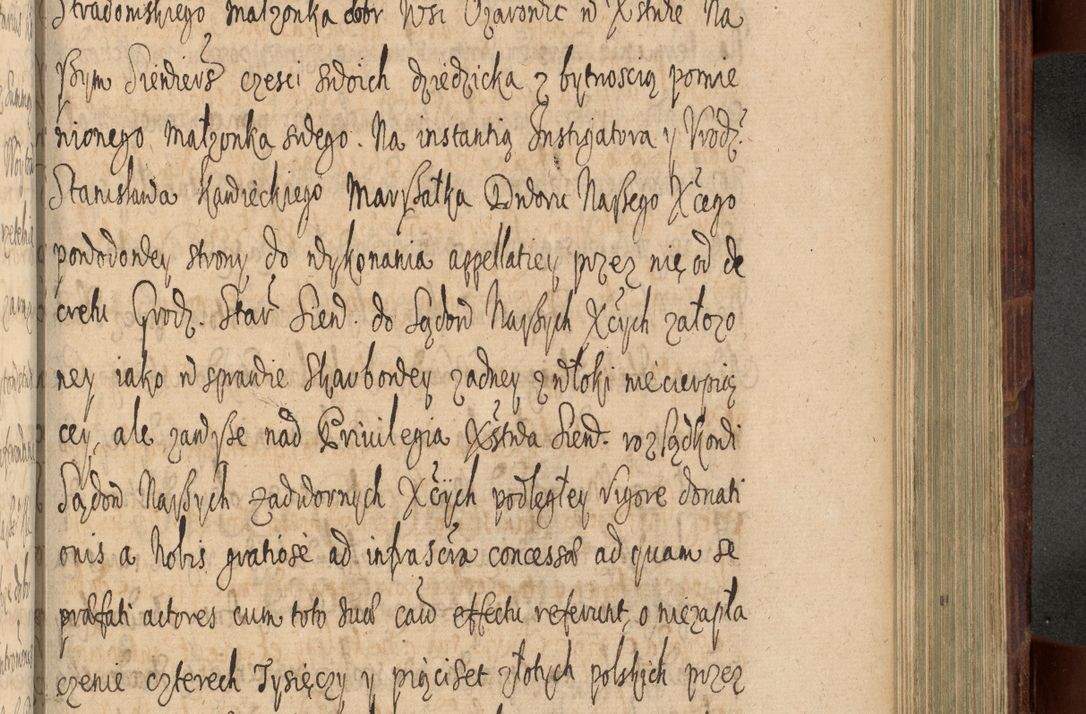 Stradomskiego małzonka dobr Wsi Ozarowic w Xstwie Na
szym Siewiers. czesci swoich dziedzicka z bytnoscią pomie
nionego małzonka swego. Na instantią Instigatora y Urodz.
Stanisława Kawieckiego Marszałka Dworu Naszego Xcego
powodowey strony do wykonania appellatiey przez nię od de
cretu Grodz. Star. Siew. do Sądow Naszych Xcych załozo
ney iako w sprawie skarbowey zadney zwłoki niecierpią
cey, ale zawsze nad Privilegia Xstwa Siew. rozsądkowi
Sądow Naszych zadwornych Xcych podległey vigore donati
onis a Nobis gratiose ad infrascra concessæ ad quam se
præfati actores cum toto suæ effectu referunt, o niezapła
czenie czterech Tysięczy y piąciset złotych polskich przez